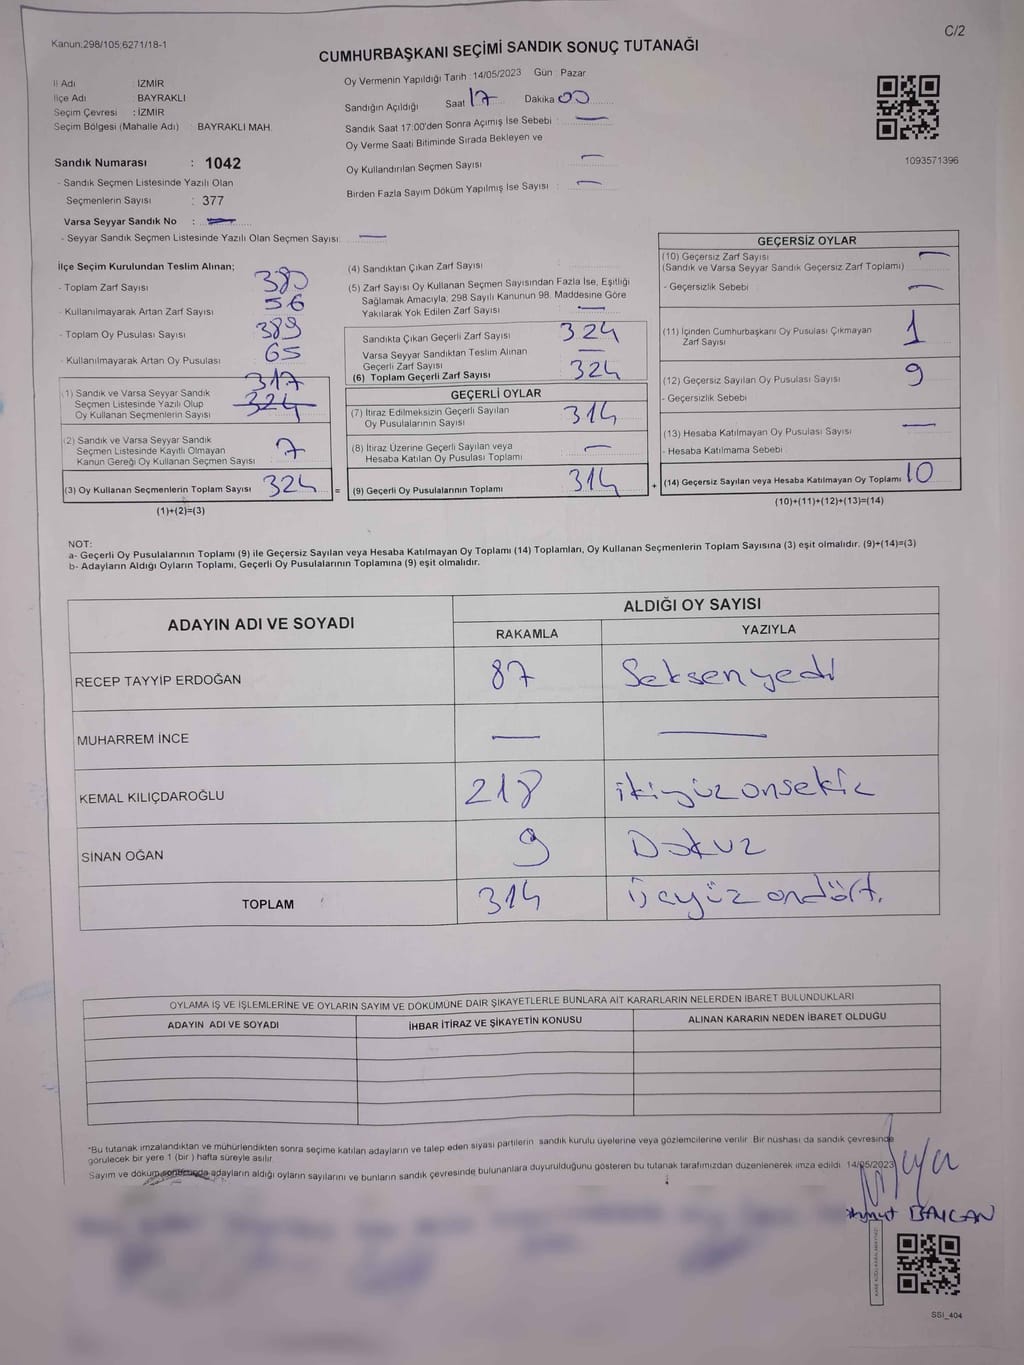 Kanun:298/105;6271/18-1
C/2
CUMHURBAŞKANI SEÇİMİ SANDIK SONUÇ TUTANAĞI
İl Adı : İZMİR
İlçe Adı : BAYRAKLI
Seçim Çevresi : İZMİR
Seçim Bölgesi (Mahalle Adı) : BAYRAKLI MAH.
Sandık Numarası : 1042
- Sandık Seçmen Listesinde Yazılı Olan
Seçmenlerin Sayısı : 377
Varsa Seyyar Sandık No : —
- Seyyar Sandık Seçmen Listesinde Yazılı Olan Seçmen Sayısı: —
Oy Vermenin Yapıldığı Tarih : 14/05/2023 Gün : Pazar
Sandığın Açıldığı Saat 17 Dakika 00
Sandık Saat 17:00'den Sonra Açımış İse Sebebi : —
Oy Verme Saati Bitiminde Sırada Bekleyen ve
Oy Kullandırılan Seçmen Sayısı : —
Birden Fazla Sayım Döküm Yapılmış İse Sayısı : —
1093571396
İlçe Seçim Kurulundan Teslim Alınan;
- Toplam Zarf Sayısı 380
- Kullanılmayarak Artan Zarf Sayısı 56
- Toplam Oy Pusulası Sayısı 389
- Kullanılmayarak Artan Oy Pusulası 65
317
(1) Sandık ve Varsa Seyyar Sandık
Seçmen Listesinde Yazılı Olup 324
Oy Kullanan Seçmenlerin Sayısı
(2) Sandık ve Varsa Seyyar Sandık
Seçmen Listesinde Kayıtlı Olmayan 7
Kanun Gereği Oy Kullanan Seçmen Sayısı
(3) Oy Kullanan Seçmenlerin Toplam Sayısı 324
(1)+(2)=(3)
(4) Sandıktan Çıkan Zarf Sayısı
(5) Zarf Sayısı Oy Kullanan Seçmen Sayısından Fazla İse, Eşitliği
Sağlamak Amacıyla; 298 Sayılı Kanunun 98. Maddesine Göre
Yakılarak Yok Edilen Zarf Sayısı —
Sandıkta Çıkan Geçerli Zarf Sayısı 324
Varsa Seyyar Sandıktan Teslim Alınan
Geçerli Zarf Sayısı —
(6) Toplam Geçerli Zarf Sayısı 324
GEÇERLİ OYLAR
(7) İtiraz Edilmeksizin Geçerli Sayılan
Oy Pusulalarının Sayısı 314
(8) İtiraz Üzerine Geçerli Sayılan veya
Hesaba Katılan Oy Pusulası Toplamı —
= (9) Geçerli Oy Pusulalarının Toplamı 314 +
GEÇERSİZ OYLAR
(10) Geçersiz Zarf Sayısı —
(Sandık ve Varsa Seyyar Sandık Geçersiz Zarf Toplamı)
- Geçersizlik Sebebi —
(11) İçinden Cumhurbaşkanı Oy Pusulası Çıkmayan
Zarf Sayısı 1
(12) Geçersiz Sayılan Oy Pusulası Sayısı 9
- Geçersizlik Sebebi
(13) Hesaba Katılmayan Oy Pusulası Sayısı —
- Hesaba Katılmama Sebebi
(14) Geçersiz Sayılan veya Hesaba Katılmayan Oy Toplamı 10
(10)+(11)+(12)+(13)=(14)
NOT:
a- Geçerli Oy Pusulalarının Toplamı (9) ile Geçersiz Sayılan veya Hesaba Katılmayan Oy Toplamı (14) Toplamları, Oy Kullanan Seçmenlerin Toplam Sayısına (3) eşit olmalıdır. (9)+(14)=(3)
b- Adayların Aldığı Oyların Toplamı, Geçerli Oy Pusulalarının Toplamına (9) eşit olmalıdır.
ADAYIN ADI VE SOYADI
ALDIĞI OY SAYISI
RAKAMLA YAZIYLA
RECEP TAYYİP ERDOĞAN 87 Seksenyedi
MUHARREM İNCE — —
KEMAL KILIÇDAROĞLU 218 ikiyüzonsekiz
SİNAN OĞAN 9 Dokuz
TOPLAM 314 Üçyüzondört.
OYLAMA İŞ VE İŞLEMLERİNE VE OYLARIN SAYIM VE DÖKÜMÜNE DAİR ŞİKAYETLERLE BUNLARA AİT KARARLARIN NELERDEN İBARET BULUNDUKLARI
ADAYIN ADI VE SOYADI İHBAR İTİRAZ VE ŞİKAYETİN KONUSU ALINAN KARARIN NEDEN İBARET OLDUĞU
*Bu tutanak imzalandıktan ve mühürlendikten sonra seçime katılan adayların ve talep eden siyasi partilerin sandık kurulu üyelerine veya gözlemcilerine verilir. Bir nüshası da sandık çevresinde
görülecek bir yere 1 (bir) hafta süreyle asılır.
Sayım ve döküm sonucunda adayların aldığı oyların sayılarını ve bunların sandık çevresinde bulunanlara duyurulduğunu gösteren bu tutanak tarafımızdan düzenlenerek imza edildi. 14/05/2023
SSI_404